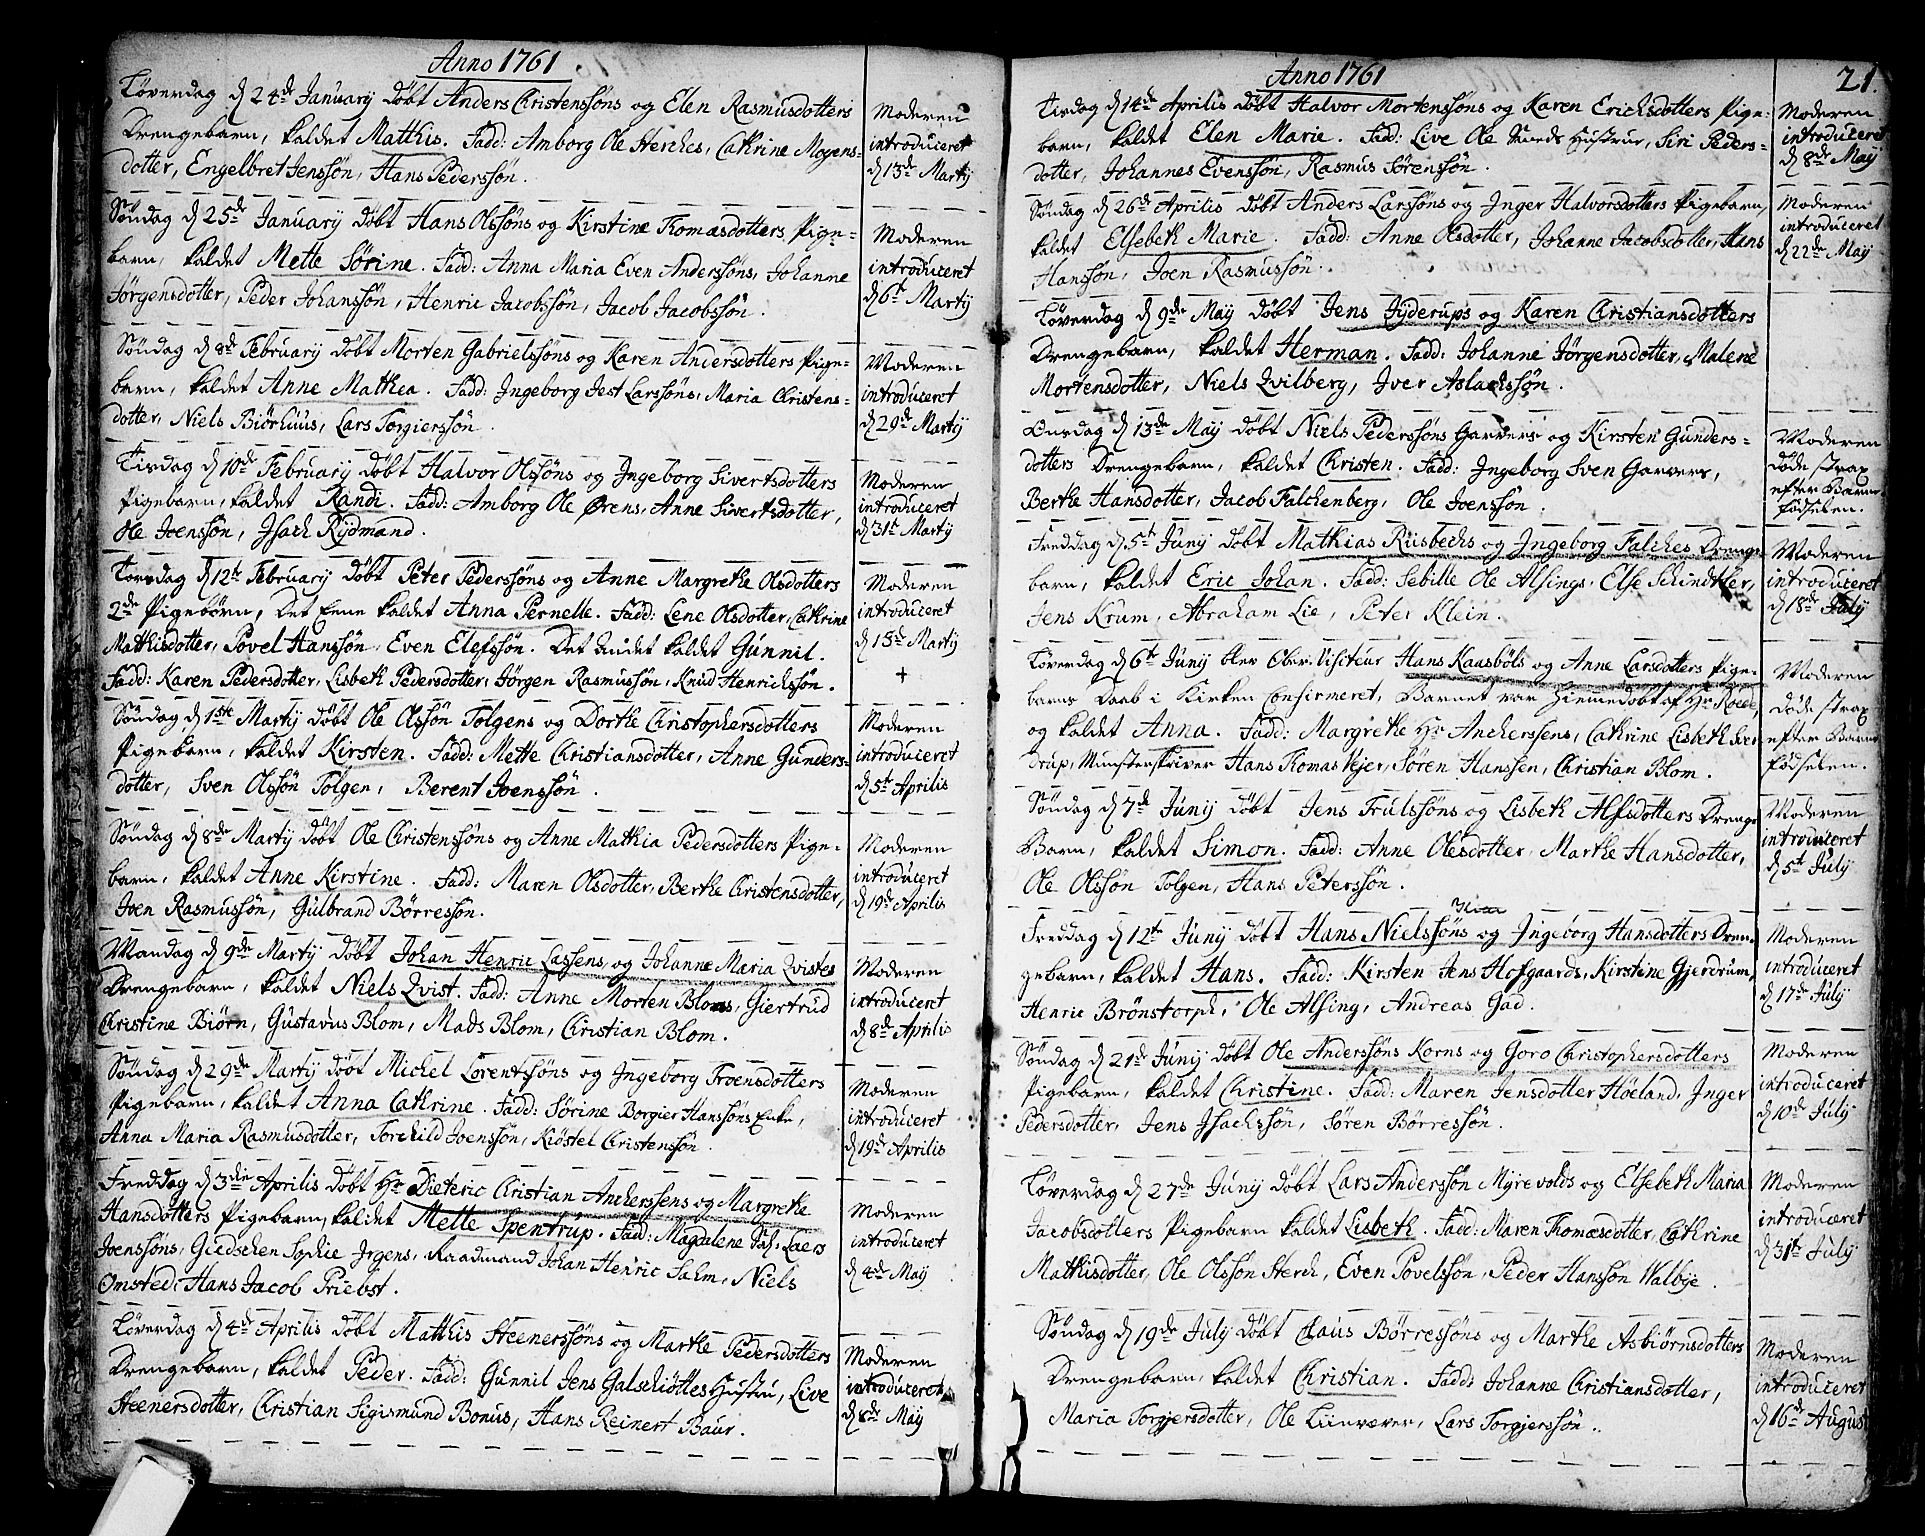 Anno 1761
Løverdag d 24de January døbt Anders Christenssøns og Elen Rasmusdotters
Drengebarn, kaldet Matthis. Fadd: Amborg Ole Herches, Cathrine Mogens-
dotter, Engelbret Jenssøn, Hans Pederssøn.
Moderen
introduceret
d 13de Martÿ
Søndag d 25de January døbt Hans Olssøns og Kirstine Thomæsdotters Pige-
barn, kaldet Mette Sørine. Fadd: Anna Maria Even Anderssøns, Johanne
Jørgensdotter, Peder Johanssøn, Henric Jacobssøn, Jacob Jacobssøn.
Moderen
introduceret
d 6te Martÿ
Søndag d 8de February døbt Morten Gabrielssøns og Karen Andersdotters Pige-
barn, kaldet Anne Mathea. Fadd: Ingeborg Jest Larssøns, Maria Christens-
dotter, Niels Biørhuus, Lars Torgierssøn.
Moderen
introduceret
d 29de Martÿ
Tisdag d 10de February døbt Halvor Olssøns og Ingeborg Sivertsdotters
Pigebarn, kaldet Randi. Fadd: Amborg Ole Ørens, Anne Sivertsdotter,
Ole Joenssøn, Isach Rydmand.
Moderen
introduceret
d 31te Martÿ
Torsdag d 12te February døbt Peter Pederssøns og Anne Margrethe Olsdotters
2de Pigebørn, Det Eene kaldet Anna Pernelle. Fadd: Lene Olsdotter, Cathrine
Mathisdotter, Povel Hanssøn, Even Elefssøn. Det Andet kaldet Gunnil.
Fadd: Karen Pedersdotter, Lisbeth Pedersdotter, Jørgen Rasmussøn, Knud Henrichssøn.
Moderen
introduceret
d 15de Martÿ
+
Søndag d 1ste Martÿ døbt Ole Olssøn Tolgens og Dorthe Christophersdotters
Pigebarn, kaldet Kirsten. Fadd: Mette Christiansdotter, Anne Gunders-
dotter, Sven Olssøn Tolgen, Berent Joenssøn.
Moderen
introduceret
d 5te Aprilis
Søndag d 8de Martÿ døbt Ole Christenssøns og Anne Mathia Pedersdotters Pige-
barn, kaldet Anne Kirstine. Fadd: Maren Olsdotter, Berthe Christensdotter,
Joen Rasmussøn, Gulbrand Børressøn.
Moderen
introduceret
d 19de Aprilis
Mandag d 9de Martÿ døbt Johan Henric Lassens og Johanne Maria Qvistes
Drengebarn, kaldet Niels Qvist. Fadd: Anne Morten Bloms, Giertrud
Christine Biørn, Gustavus Blom, Mads Blom, Christian Blom.
Moderen
introduceret
d 8de Aprilis
Søndag d 29de Martÿ døbt Michel Lorentssøns og Ingeborg Troensdotters
Pigebarn, kaldet Anna Cathrine. Fadd: Sørine Borgier Hanssøns Enke,
Anna Maria Rasmusdotter, Torchild Joenssøn, Kiøstel Christenssøn.
Moderen
introduceret
d 19de Aprilis
Freddag d 3die Aprilis døbt Hr Dieteric Christian Ancherssens og Margrethe
Hansdotters Pigebarn, kaldet Mette Spentrup. Fadd: Magdalene Laers
Joenssøns, Giedschen Sophie Irgens, Raadmand Johan Henric Salm, Niels
Omsted, Hans Jacob Priebst.
Moderen
introduceret
d 4de Maÿ
Løverdag d 4de Aprilis døbt Matthis Steenerssøns og Marthe Pedersdotters
Drengebarn, kaldet Peder. Fadd: Gunnil Jens Galschiøttes Hustru, Live
Steenersdotter, Christian Sigismund Bonus, Hans Reinert Baur.
Moderen
introduceret
d 8de Maÿ
Anno 1761
21.
Tisdag d 14de Aprilis døbt Halvor Mortenssøns og Karen Erichsdotters Pige-
barn, kaldet Elen Marie. Fadd: Live Ole Hustrue, Siri Peders-
dotter, Johannes Evenssøn, Rasmus Sørenssøn.
Moderen
introduceret
d 8de Maÿ
Søndag d 26de Aprilis døbt Anders Larssøns og Inger Halvorsdotters Pigebarn,
kaldet Elsebeth Marie. Fadd: Anne Olsdotter, Johanne Jacobsdotter, Hans
Hanssøn, Joen Rasmussøn.
Moderen
introduceret
d 22de Maÿ
Løverdag d 9de Maÿ døbt Jens Jyderups og Karen Christiansdotters
Drengebarn, kaldet Herman. Fadd: Johanne Jørgensdotter, Malene
Mortensdotter, Niels Qvilberg, Iver Aslachssøn.
Onsdag d 13de Maÿ døbt Niels Pederssøns Garvers og Kirsten Gunders-
dotters Drengebarn, kaldet Christen. Fadd: Ingeborg Sven Garvers,
Berthe Hansdotter, Jacob Falchenberg, Ole Joenssøn.
Moderen
døde strax
efter Barne
fødselen.
Freddag d 5te Junÿ døbt Mathias Rusbechs og Ingeborg Falches Drenge-
barn, kaldet Eric Johan. Fadd: Sebille Ole Alsings, Else Schindtler,
Jens Krum, Abraham Lie, Peter Klein.
Moderen
introduceret
d 18de Julÿ
Løverdag d 6te Junÿ blev Ober-Visiteur Hans Kaasbøls og Anne Larsdotters Pige-
barns Daab i Kirken Confirmeret, Barnet var Hiemmedøbt af Hr
og kaldet Anna. Fadd: Margrethe Hr Ancherssens, Cathrine Lisbeth
drup, Munsterskriver Hans Thomas Vejer, Søren Hanssen, Christian Blom.
Moderen
døde strax
efter Barne
fødselen.
Søndag d 7de Junÿ døbt Jens Trulssøns og Lisbeth Alfsdotters Drenge
Barn, kaldet Simon. Fadd: Anne Olesdotter, Marthe Hansdotter,
Ole Olssøn Tolgen, Hans Peterssøn.
Moderen
introduceret
d 5te Julÿ
Freddag d 12te Junÿ døbt Hans Nielssøns og Ingeborg Hansdotters Dren-
gebarn, kaldet Hans. Fadd: Kirsten Jens Hofgaards, Kirstine Gjerdrum,
Henric Brønstorph, Ole Alsing, Andreas Gad.
Moderen
introduceret
d 17de Julÿ
Søndag d 21de Junÿ døbt Ole Anderssøns Korns og Goro Christophersdotters
Pigebarn, kaldet Christine. Fadd: Maren Jensdotter Høeland, Inger
Pedersdotter, Jens Isachssøn, Søren Børressøn.
Moderen
introduceret
d 10de Julÿ
Løverdag d 27de Junÿ døbt Lars Anderssøn Myrevolds og Elsebeth Maria
Jacobsdotters Pigebarn kaldet Lisbeth. Fadd: Maren Thomæsdotter, Cathrine
Mathisdotter, Ole Olsson Sterch, Even Povelssøn, Peder Hanssøn Walbye.
Moderen
introduceret
d 31te Julÿ
Søndag d 19de Julÿ døbt Claus Børressøns og Marthe Asbiørnsdotters
Drengebarn, kaldet Christian. Fadd: Johanne Christiansdotter,
Maria Torgjersdotter, Ole Linvæver, Lars Torgjerssøn.
Moderen
introduceret
d 16de August